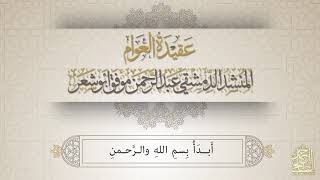 عقيدة العوام
المنشد الدمشقي عبد الرحمن موفق أبو شعر
أَبـدَأُ بِـسمِ اللهِ والرَّحـمنِ